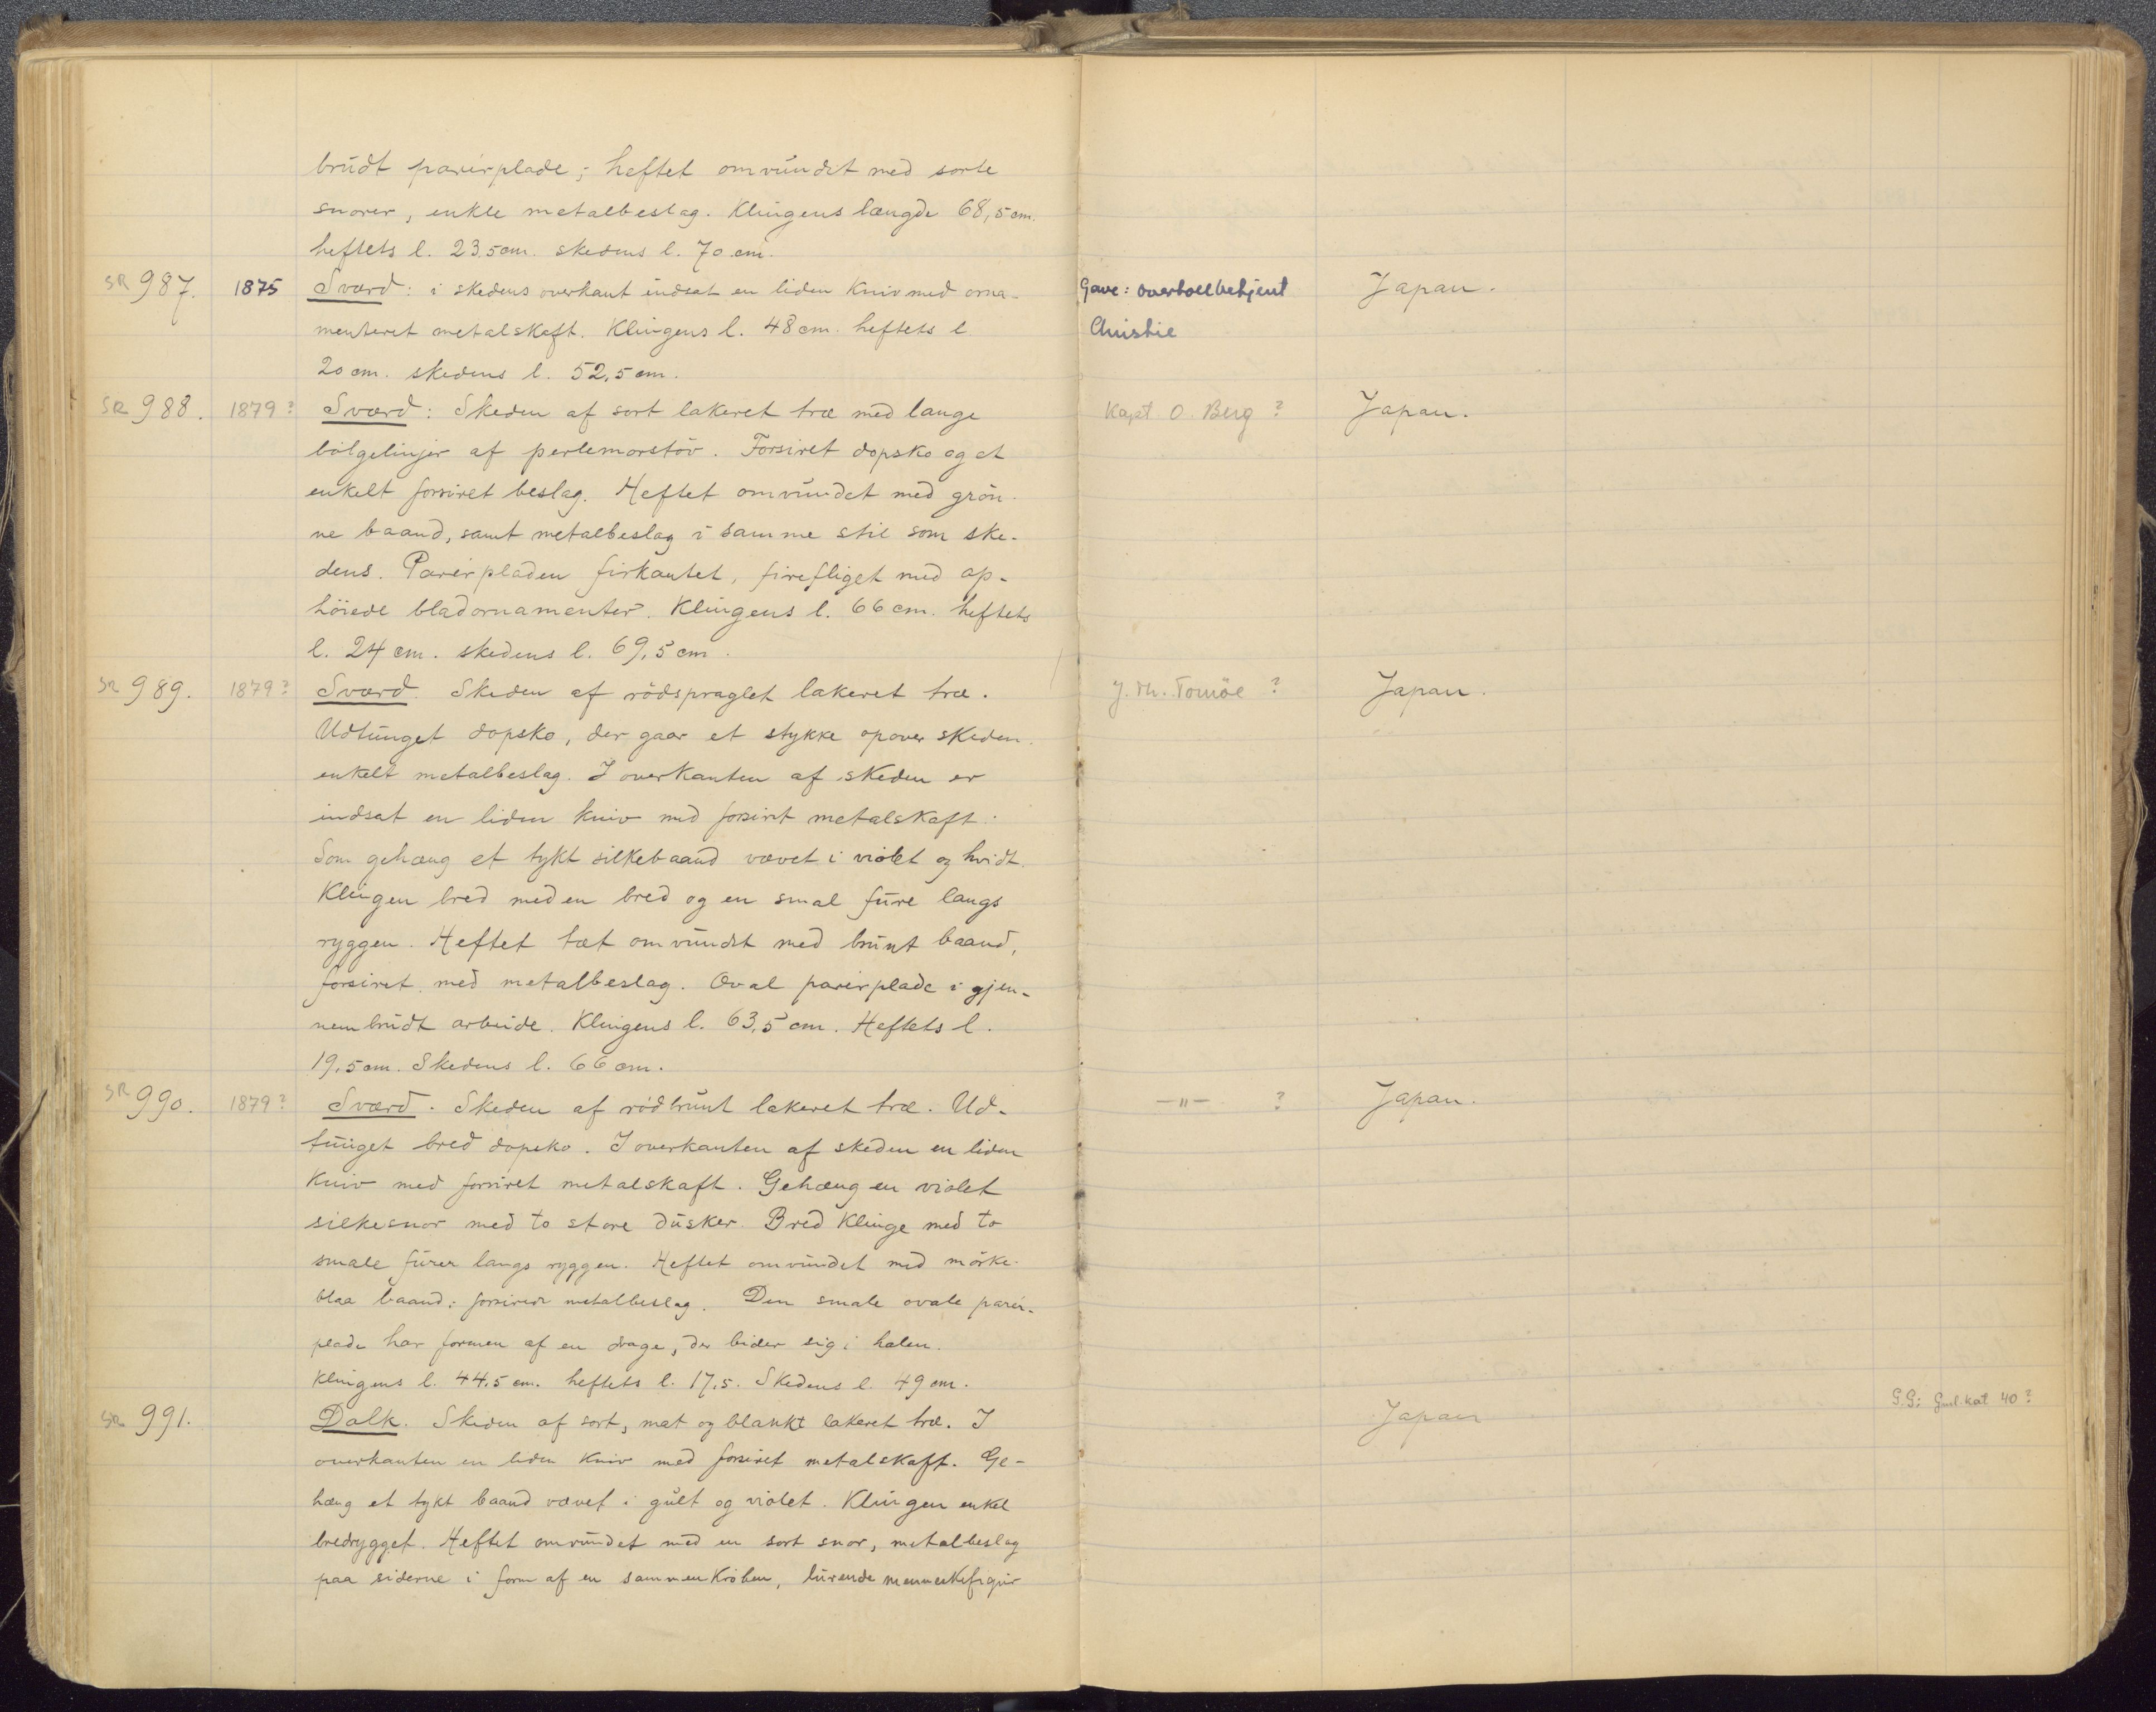 brudt parérplade; heftet omvundet med sorte
snorer, enkle metalbeslag. Klingens længde 68,5 cm.
heftets l. 23.5 cm. skedens l. 70 cm.
SR 987. 1875 Sværd: i skedens overkant indsat en liden Kniv med orna- Gave: overtollbetjent Japan.
menteret metalskaft. Klingens l. 48 cm. heftets l Christie
20 cm. skedens l. 52,5 cm.
SR 988. 1879? Sværd: Skeden af sort lakeret træ med lange Kapt. O. Berg ? Japan.
bölgelinjer af perlemorstöv. Forsiret dopsko og et
enkelt forsiret beslag. Heftet omvundet med grön-
ne baand, samt metalbeslag i samme stil som ske-
dens. Parérpladen firkantet, firefliget med op-
höiede bladornamenter. Klingens l. 66 cm. heftets
l. 24 cm. skedens l. 69,5 cm.
SR 989. 1879? Sværd. Skeden af rödspraglet lakeret træ. J. Th. ? Japan.
Udtunget dopsko, der gaar et stykke opover skeden.
enkelt metalbeslag. I overkanten af skeden er
indsat en liden kniv med forsiret metalskaft.
Som gehæng et tykt silkebaand vævet i violet og hvidt.
Klingen bred med en bred og en smal fure langs
ryggen. Heftet tæt omvundet med brunt baand,
forsiret med metalbeslag. Oval parérplade i gjen-
nembrudt arbeide. Klingens l. 63,5 cm. Heftets l.
19,5 cm. Skedens l. 66 cm.
SR 990. 1879? Sværd. Skeden af rödbrunt lakeret træ. Ud- —"— ? Japan.
tunget bred dopsko. I overkanten af skeden en liden
Kniv med forsiret metalskaft. Gehæng en violet
silkesnor med to store dusker. Bred Klinge med to
smale furer langs ryggen. Heftet omvundet med mörke-
blaa baand; forsiret metalbeslag. Den smale ovale parér-
plade har formen af en drage, der bider sig i halen.
Klingens l. 44.5 cm. heftets l. 17,5. Skedens l. 49 cm.
SR 991. Dolk. Skeden af sort, mat og blankt lakeret træ. I Japan G.G: Gml. kat 40?
overkanten en liden Kniv med forsiret metalskaft. Ge-
hæng et tykt baand vævet i gult og violet. Klingen enkel
bredrygget. Heftet omvundet med en sort snor, metalbeslag
paa siderne i form af en sammenkröben, lurende menneskefigur